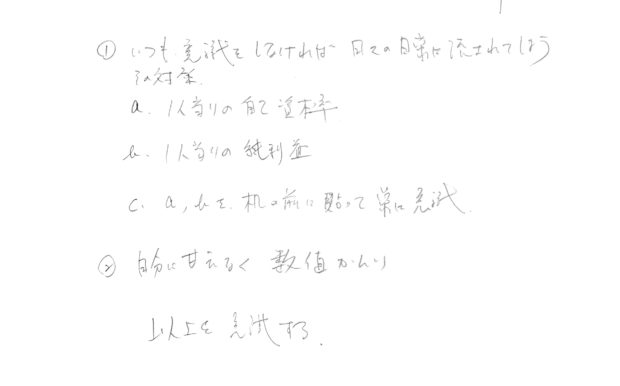 ① いつも意識をしなければ 日々の日常に流されてしまう
その対策
a. 1人当りの自己資本率
b. 1人当りの純利益
c. a, bを、机の前に貼って常に意識
② 自分に甘えなく 数値かんり
以上を意識する.